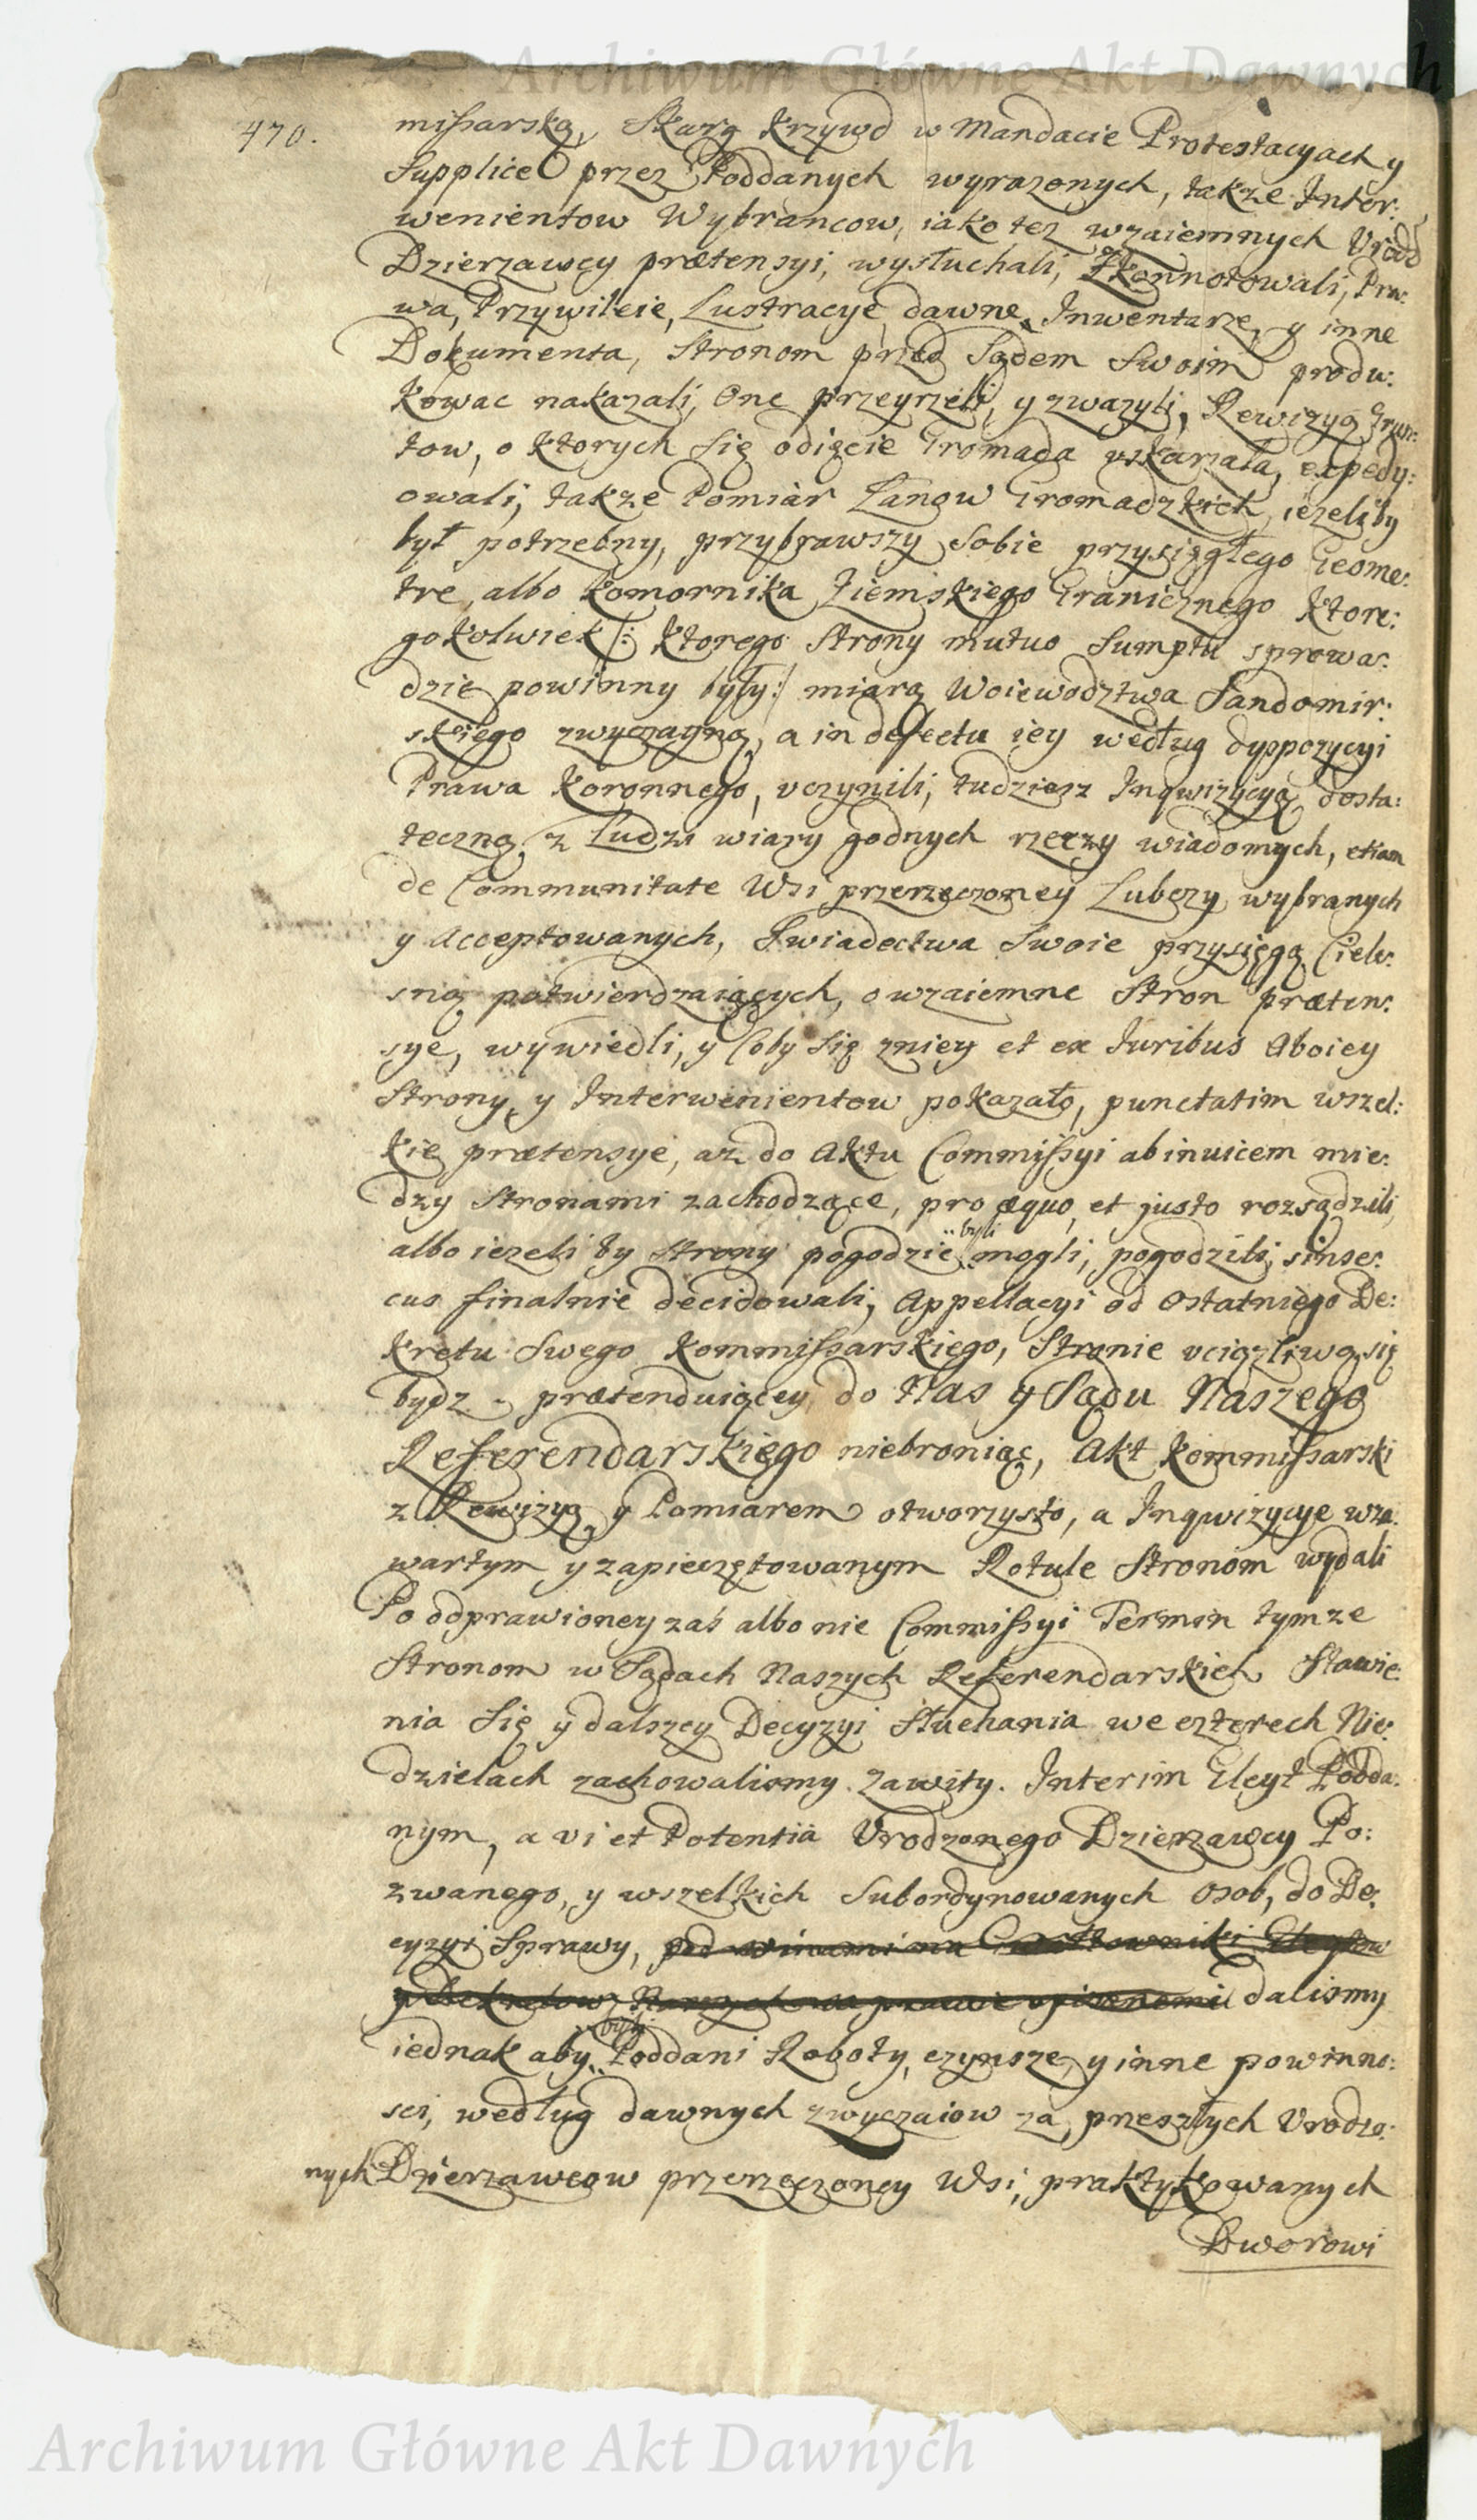 Archiwum Główne Akt Dawnych
470.
missarską, Skarg krzywd w Mandacie Protestacyach y
Supplice przez Poddanych wyrazonych, także Inter:
wenientow Wybrancow, iako tez wzaiemnych Urodz
Dzierzawcy prætensyi, wysłuchali, Zkonnotowali, Pra:
wa, Przywileie, Lustracye dawne, Inwentarze, y inne
Dokumenta, Stronom przed Sądem Swoim produ:
kować nakazali, One przeyrzeli, y zwazyli, Rewizyą Grun:
tow, o ktorych Się odięcie Gromada uskarzała, expedy:
owali, także Pomiar Łanow Gromadzkich, iezeliby
był potrzebny, przybrawszy Sobie przysięgłego Geome:
tre, albo Komornika Ziemskiego Granicznego ktore:
gokolwiek /: ktorego Strony mutuo Sumptu sprowa:
dzic powinny były :/ miarą Woiewodztwa Sandomir:
skiego zwyczayną, a in defectu iey według dyspozycyi
Prawa Koronnego, uczynili, tudziesz Inqwizycyą dosta:
teczną, z Ludzi wiary godnych rzeczy wiadomych, etiam
de Communitate Wsi przerzeczoney Lubczy wybranych
y Acceptowanych, Swiadectwa Swoie przysięgą Ciele:
sną potwierdzaiących, o wzaiemne Stron præten:
sye, wywiedli, y Coby Się zniey et ex Juribus Oboiey
Strony y Interwenientow pokazało, punctatim wszel:
kie prætensye, az do Aktu Commissyi ab inuicem mie:
dzy Stronami zachodzące, pro æquo et justo rozsądzili,
byli
albo iezeli by Strony pogodzic mogli, pogodzili, sinse:
cus finalnie decidowali, Appellacyi od Ostatniego De:
kretu Swego Kommissarskiego, Stronie uciązliwą się
bydz prætenduiącey do Nas y Sądu Naszego
Referendarskiego niebroniąc, Akt Kommissarski
z Rewizyą y Pomiarem otworzysto, a Inqwizycye wza:
wartym y zapieczętowanym Rotule Stronom wydali
Po odprawioney zaś albo nie Commissyi Termin tymze
Stronom w Sądach Naszych Referendarskich Stawie:
nia Się y dalszey Decyzyi Słuchania we czterech Nie:
dzielach zachowalismy zawity. Interim Gleyt Podda:
nym, a vi et Potentia Urodzonego Dzierzawcy Po:
zwanego, y wszelkich Subordynowanych osob, do De:
cyzyi Sprawy, pod winami na Gwałtowniki Gleytow
y Dekretow Naszych w prawie opisanemi dalismy
byli
iednak aby Poddani Roboty, czynsze, y inne powinno:
sci, według dawnych zwyczaiow za przeszłych Urodzo:
nych Dzierzawcow przerzeczoney Wsi, praktykowanych
Dworowi
Archiwum Główne Akt Dawnych